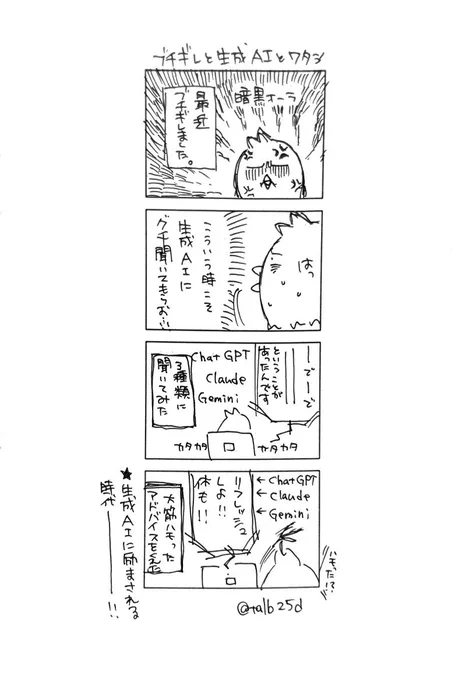 ブチギレと生成AIとワタシ
暗黒オーラ
最近
ブチギレました。
はっ
こういう時こそ
生成AIに
グチ聞いてもらお…
ーでーで
ということが
あったんです
ChatGPT
Claude
Gemini
3種類に
聞いてみた
カタカタ
カタカタ
←ChatGPT
←Claude
←Gemini
リフレッシュ
しよ!!
休も!!
ハモった!?
大筋ハモった
アドバイスをくれた
★生成AIに励まされる
時代——!!
@talb25d